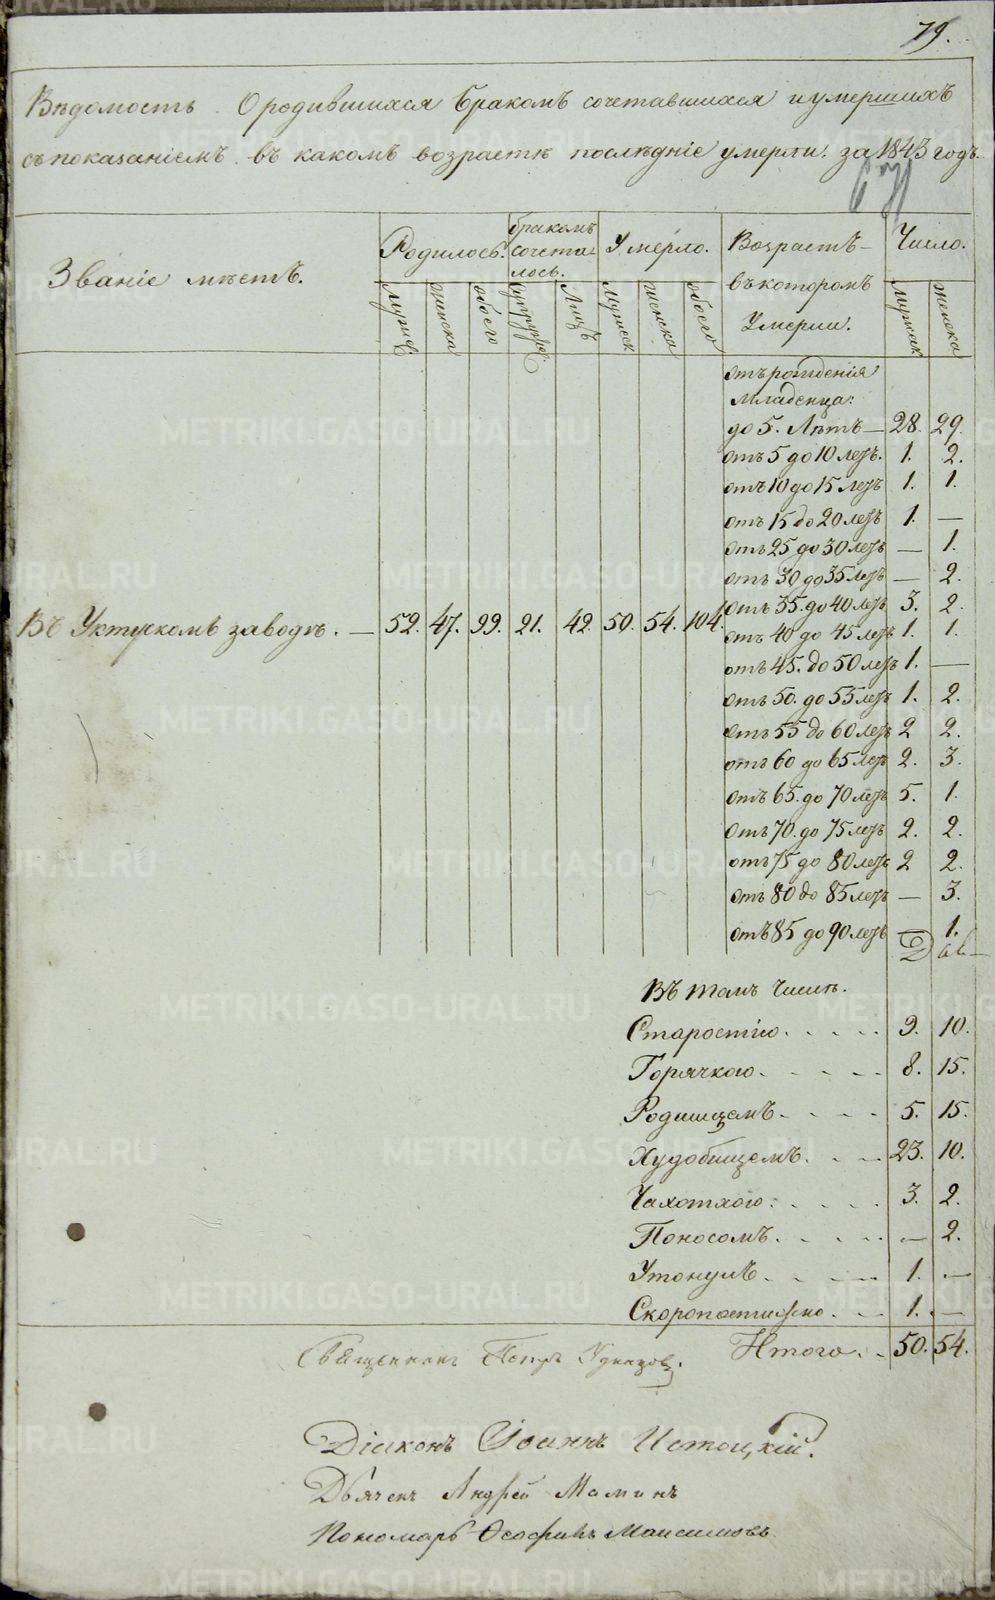 79.
Вѣдомость. О родившихся бракомъ сочетавшихся и умершихъ
съ показаніемъ въ какомъ возрастѣ послѣдніе умерли. за 1843 годъ.
Званіе мѣстъ.
Родилось.
бракомъ сочеталось.
Умерло.
Возрастъ
въ которомъ
Умерли.
Число.
женска
обоего
Лицъ
женска
обоего
женска
отъ рожденія
младенца:
до 5. Лѣтъ — 28. 29.
отъ 5 до 10 летъ. 1. 2.
отъ 10 до 15 летъ 1. 1.
отъ 15 до 20 летъ 1. —
отъ 25 до 30 летъ — 1.
отъ 30 до 35 летъ — 2.
отъ 35. до 40 летъ 3. 2.
Въ Уктускомъ заводѣ. — 52. 47. 99. 21. 42. 50. 54. 104.
отъ 40 до 45 летъ 1. 1.
отъ 45. до 50 летъ 1. —
отъ 50. до 55 летъ 1. 2.
отъ 55 до 60 летъ 2 2.
отъ 60 до 65 летъ 2. 3.
отъ 65. до 70 летъ 5. 1.
отъ 70. до 75 летъ 2. 2.
отъ 75 до 80 летъ 2 2.
отъ 80 до 85 летъ — 3.
отъ 85 до 90 летъ — 1.
Въ томъ числѣ.
Старостію. . . . . 9. 10.
Горячкою. . . . . 8. 15.
Родимцемъ. . . . 5. 15.
Худобищемъ. . . 23. 10.
Чахоткою. . . . . 3. 2.
Поносомъ. . . . . — 2.
Утонулъ. . . . . 1. —
Скоропостижно. . . 1. —
Итого. . 50. 54.
Священникъ Петръ
Діаконъ Іоаннъ Истоцкій.
Дьячекъ Андрей Маминъ
Пономарь Ѳеофанъ Максимовъ
METRIKI.GASO-URAL.RU